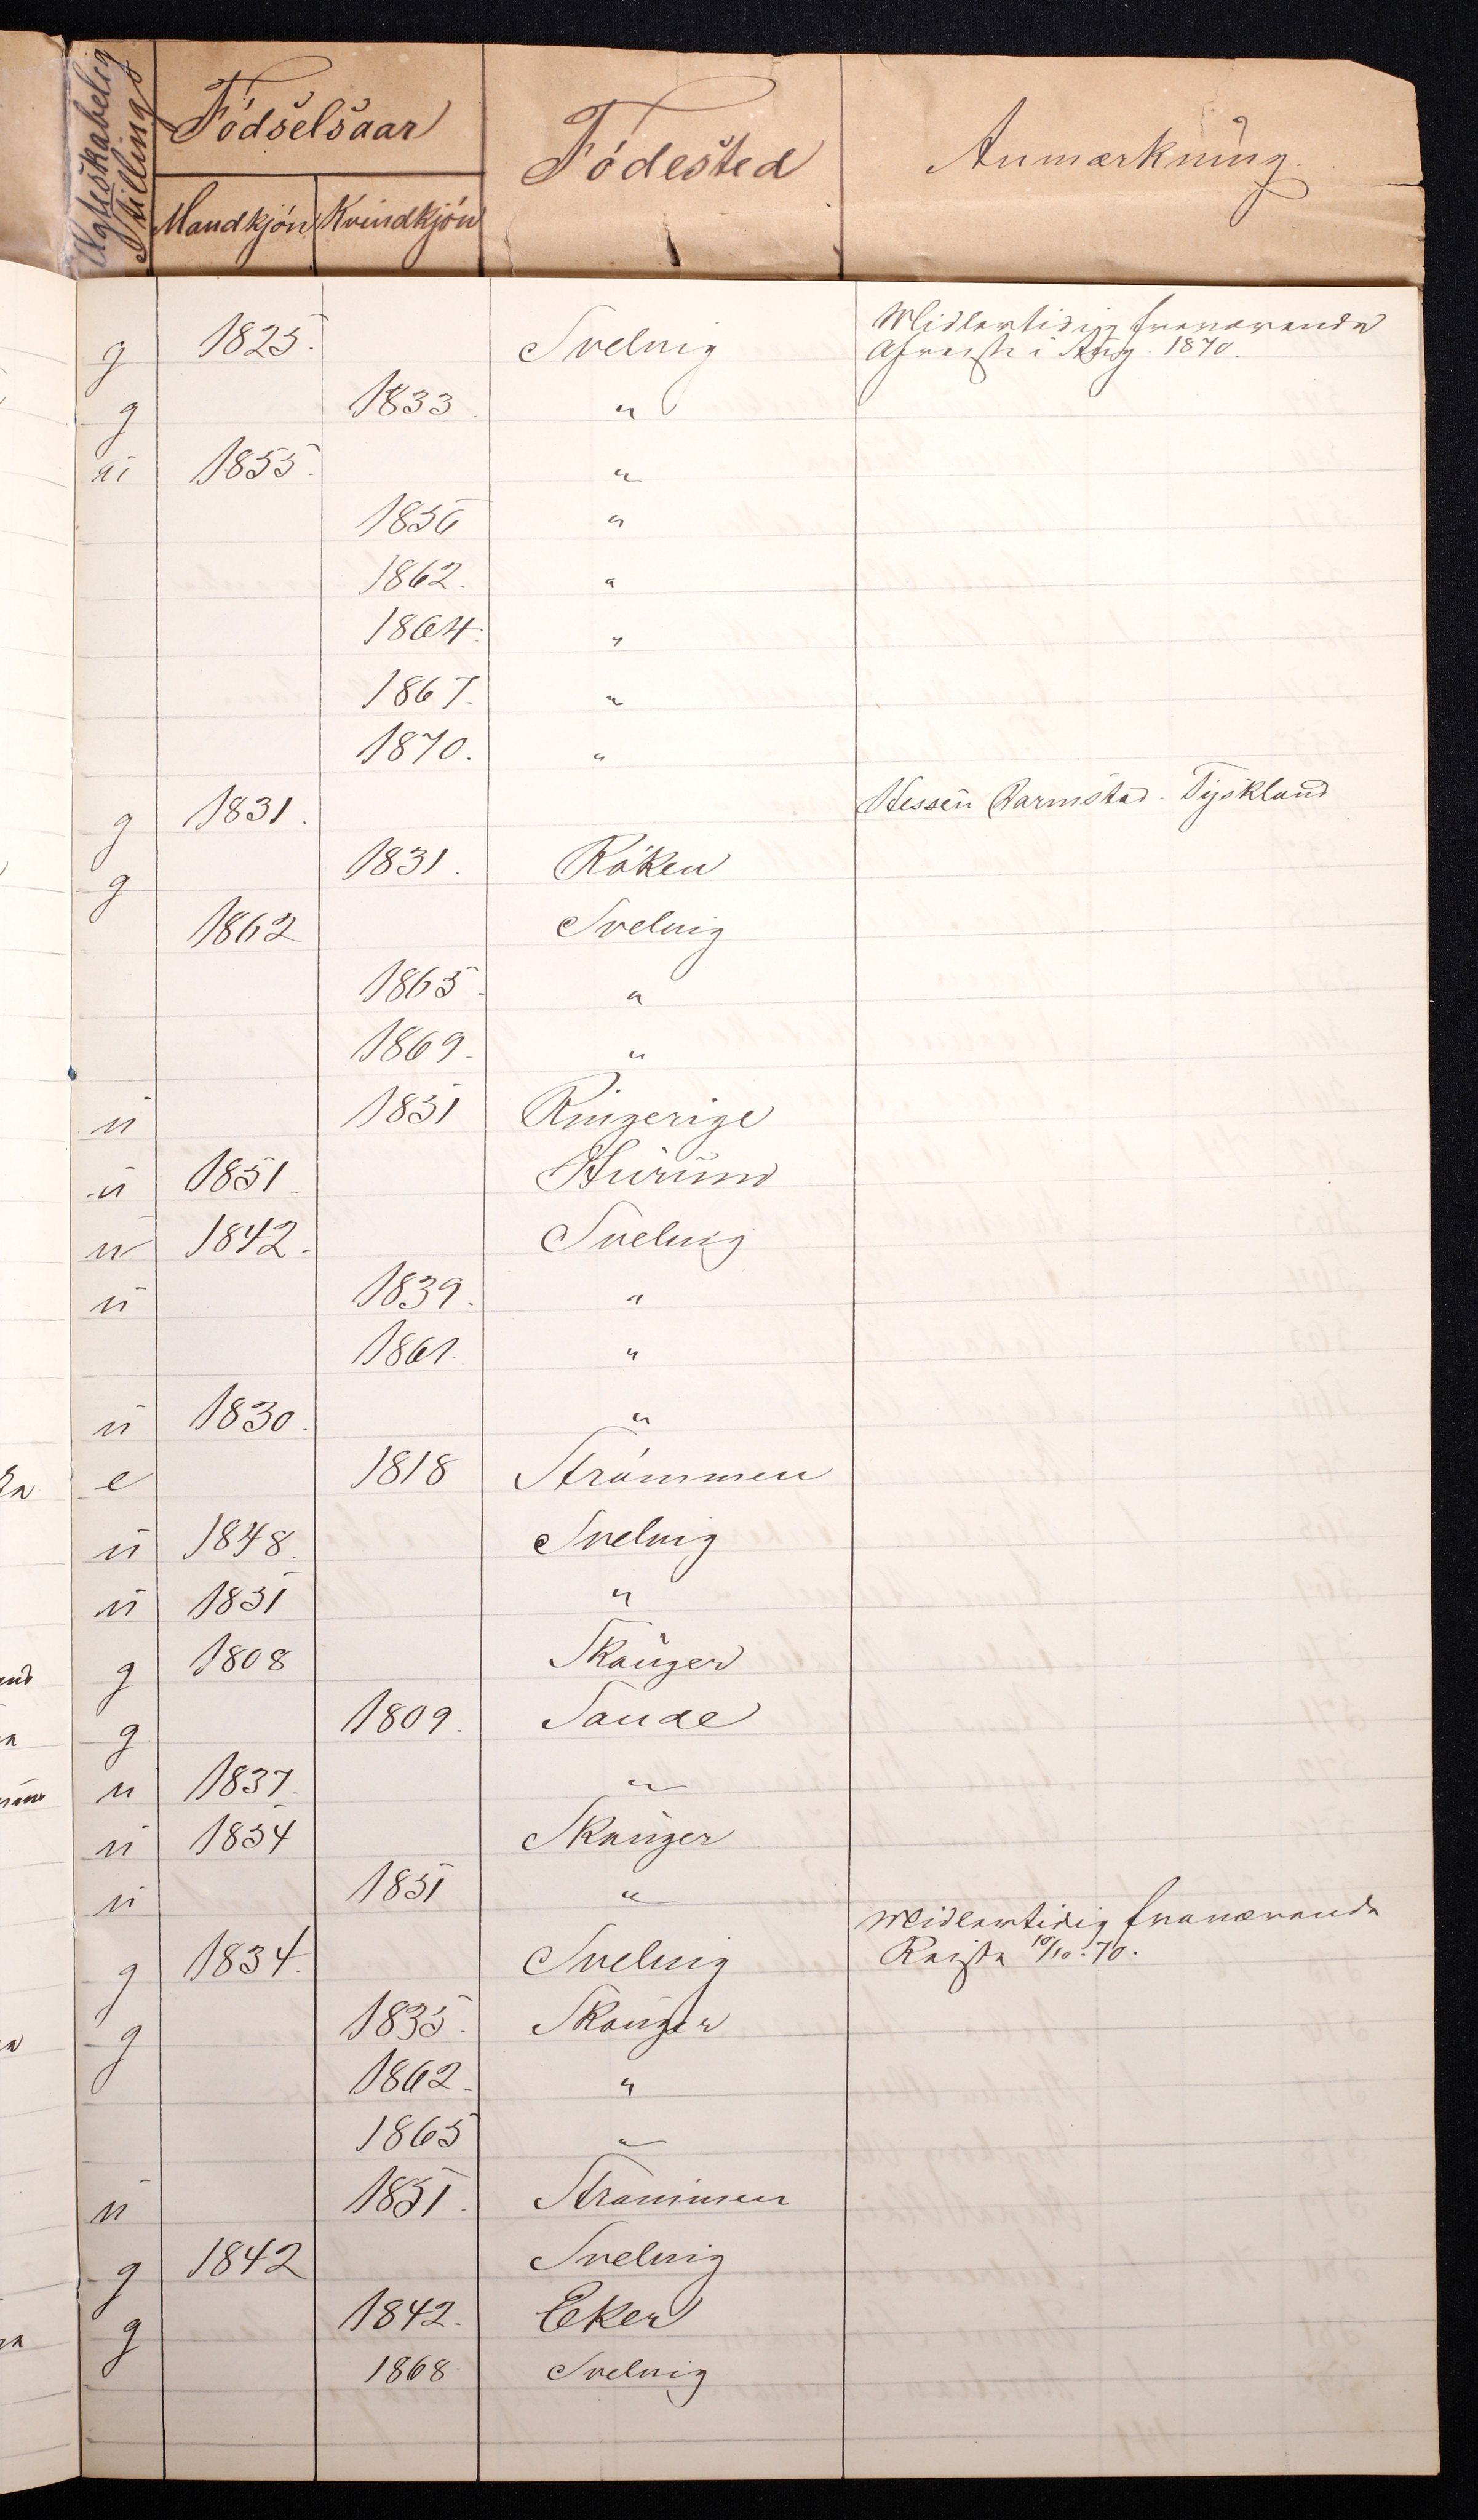 Ægteskabelig Stilling
Fødselsaar
Fødested
Anmærkning.
Mandkjøn Kvindkjøn
g 1825. Svelvig Midlertidig fraværende
Afreiste i Aug. 1870.
g 1833. "
u 1855. "
1856 "
1862. "
1864. "
1867. "
1870. "
g 1831. Hessen Darmstad. Tyskland
g 1831. Røken
1862 Svelvig
1865. "
1869. "
u 1851 Ringerige
u 1851 Hurum
u 1842. Svelvig
u 1839. "
1861. "
u 1830. "
e 1818 Strømmen
u 1848. Svelvig
u 1851 "
g 1808 Skauger
g 1809. Sande
u 1837. "
u 1854 Skauger
u 1851 "
Midlertidig fraværende
g 1834. Svelvig Reiste 10/10-70.
g 1835. Skauger
1862. "
1865 "
u 1851. Strømmen
g 1842 Svelvig
g 1842. Eker
1868. Svelvig